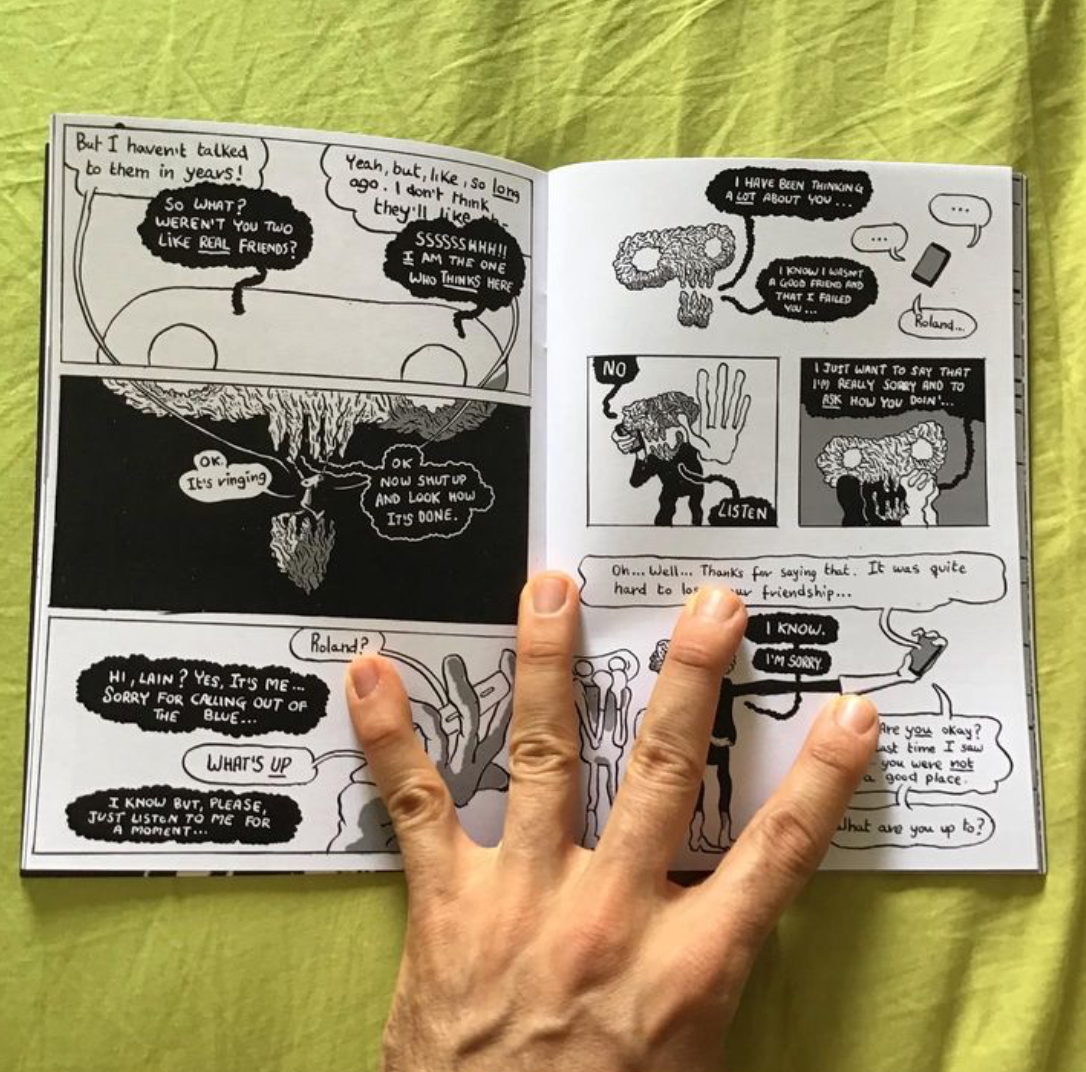 But I haven't talked
to them in years!
So WHAT?
WEREN'T YOU TWO
LIKE REAL FRIENDS?
Yeah, but, like, so long
ago. I don't think
they'll like
SSSSSSHHH!!
I AM THE ONE
WHO THINKS HERE
OK.
It's ringing
OK
NOW SHUT UP
AND LOOK HOW
IT'S DONE.
Roland?
HI, LAIN? YES, IT'S ME...
SORRY FOR CALLING OUT OF
THE BLUE...
WHAT'S UP
I KNOW BUT, PLEASE,
JUST LISTEN TO ME FOR
A MOMENT...
I HAVE BEEN THINKING
A LOT ABOUT YOU...
...
...
I KNOW I WASN'T
A GOOD FRIEND AND
THAT I FAILED
YOU...
Roland...
NO
LISTEN
I JUST WANT TO SAY THAT
I'M REALLY SORRY AND TO
ASK HOW YOU DOIN'...
Oh... Well... Thanks for saying that. It was quite
hard to friendship...
I KNOW.
I'M SORRY.
Are you okay?
last time I saw
you were not
a good place.
What are you up to?